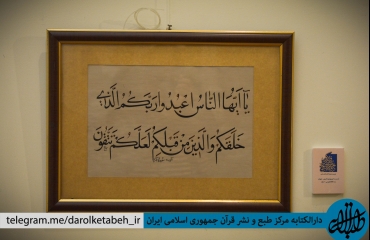 يَا أَيُّهَا النَّاسُ اعْبُدُوا رَبَّكُمُ الَّذِي
خَلَقَكُمْ وَالَّذِينَ مِنْ قَبْلِكُمْ لَعَلَّكُمْ تَتَّقُونَ
telegram.me/darolketabeh_ir دارالکتابه مرکز طبع و نشر قرآن جمهوری اسلامی ایران